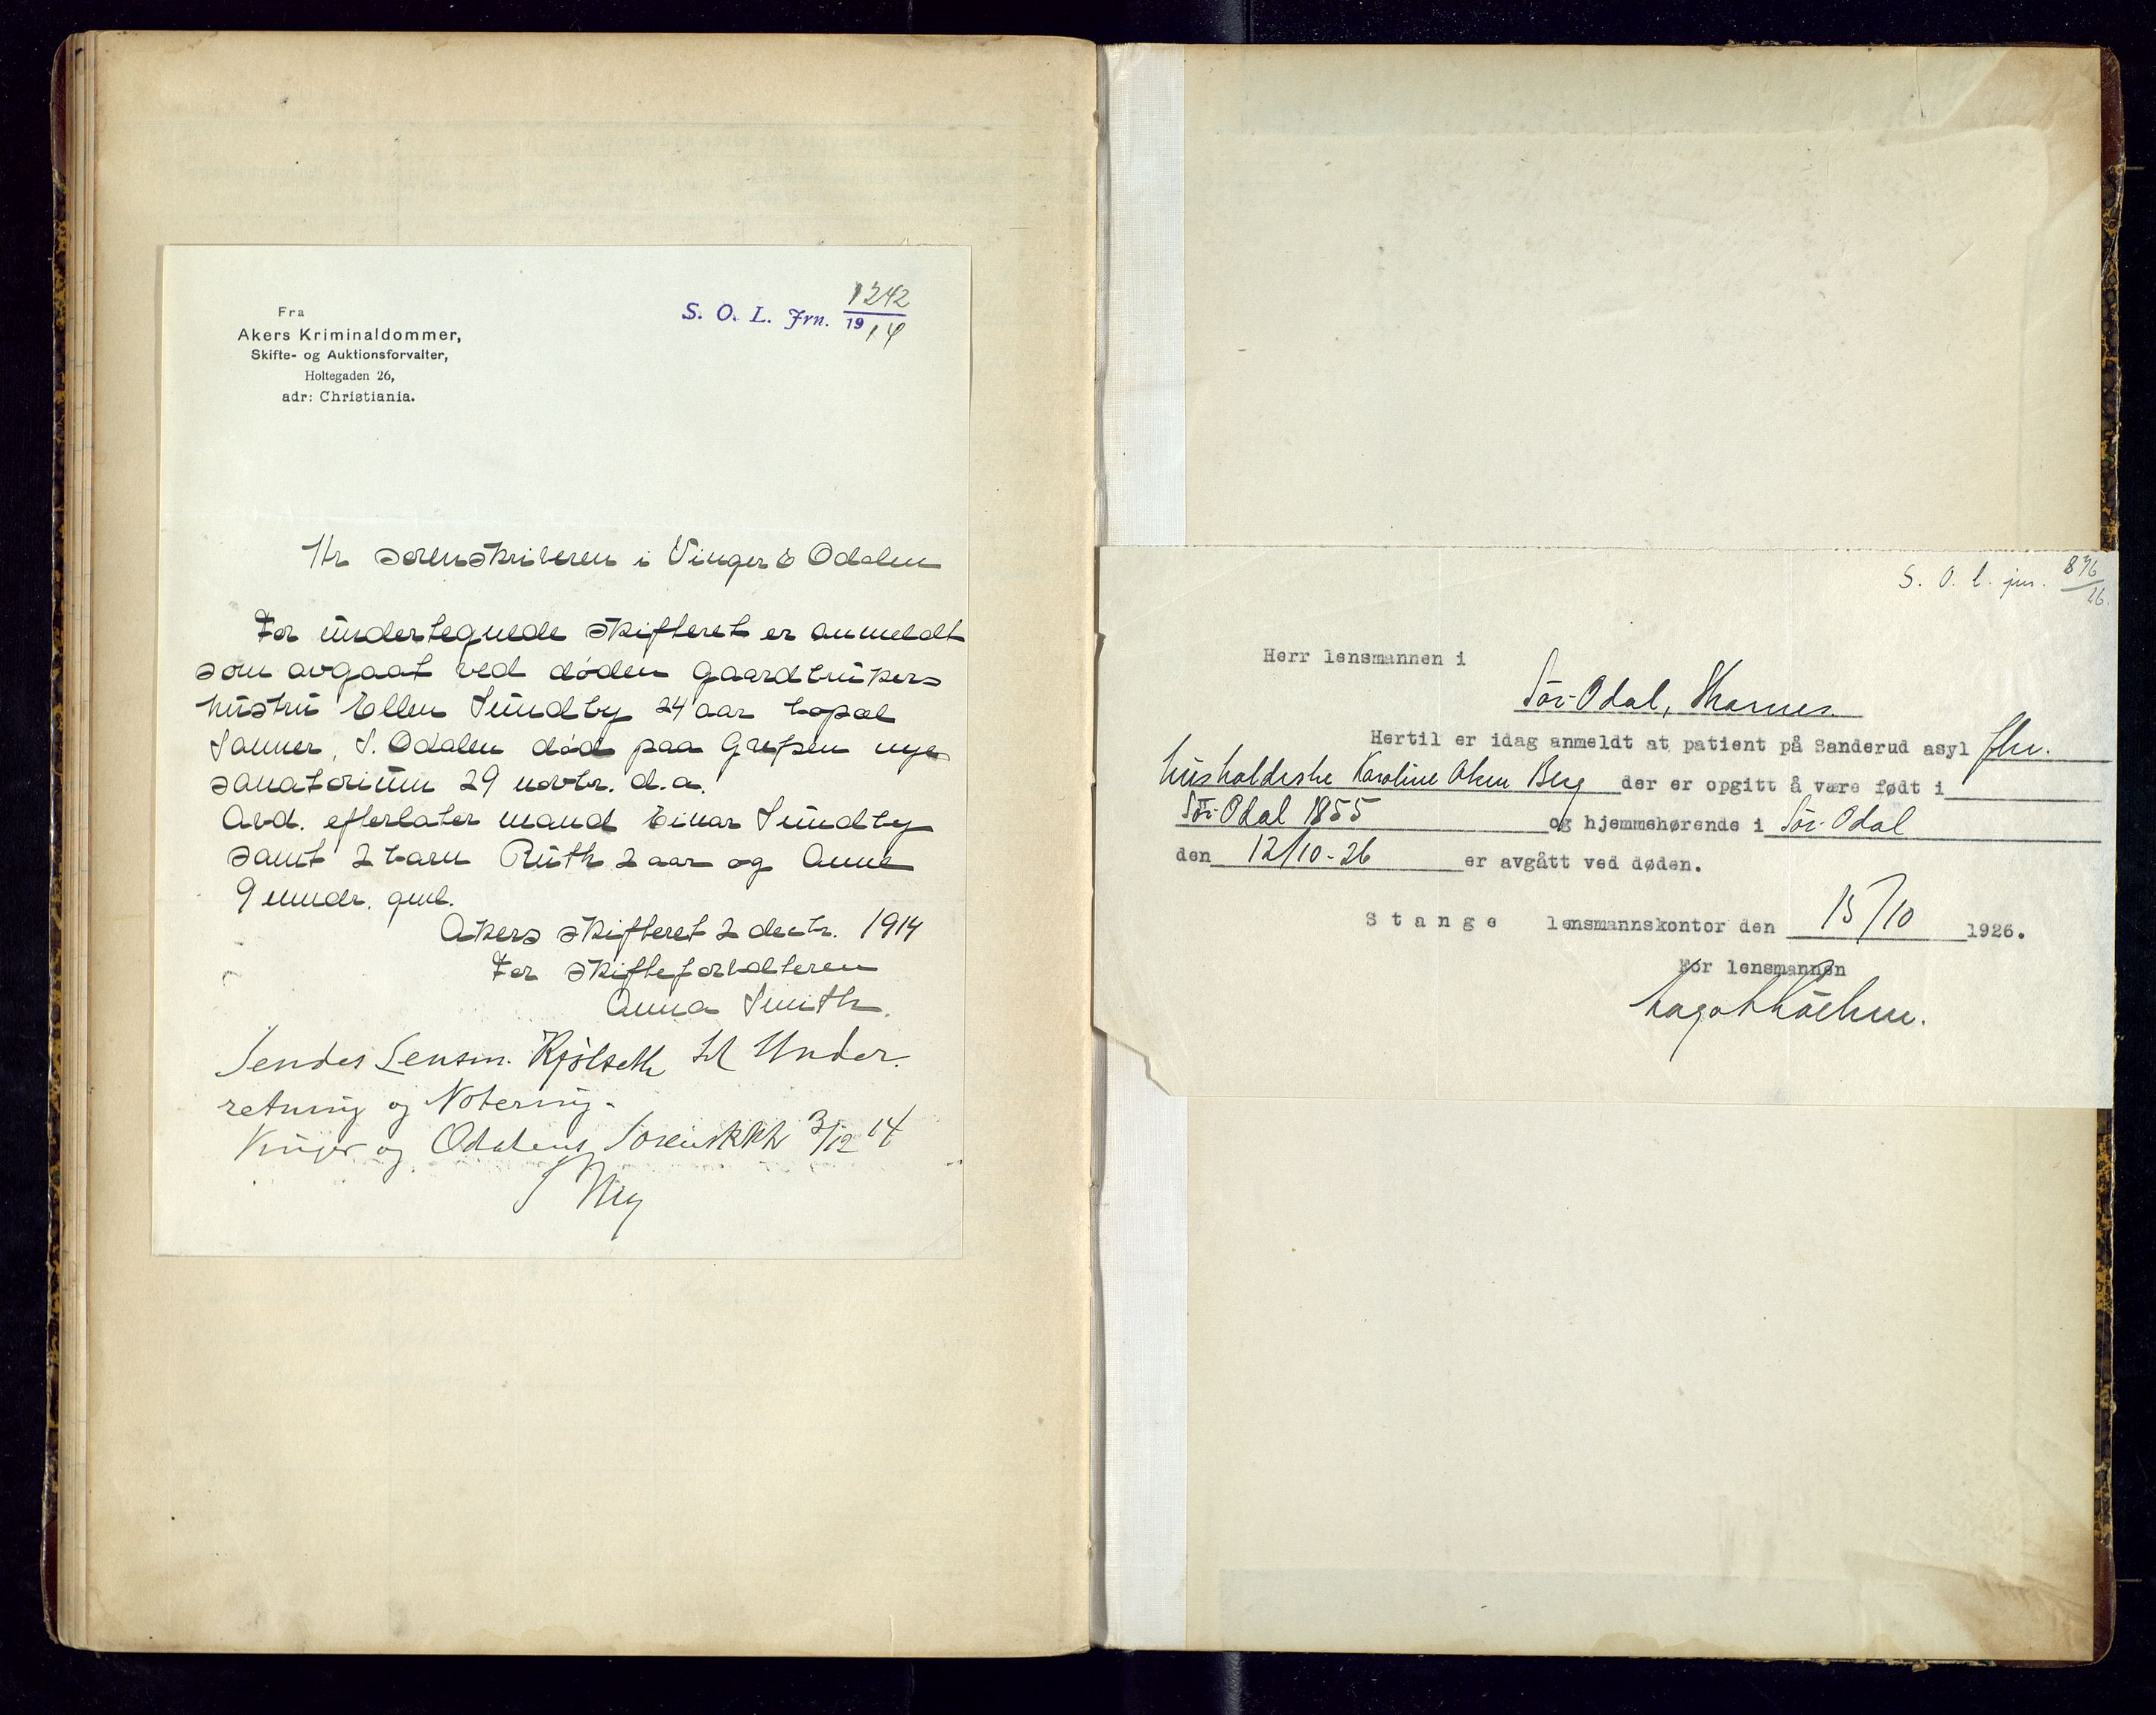 Fra
Akers Kriminaldommer,
Skifte- og Auktionsforvalter,
Holtegaden 26,
adr: Christiania.
S. O. L. Jrn. 1242
1914
Hr sorenskriveren i Vinger & Odalen
For undertegnede skifteret er anmeldt
som avgaat ved døden gaardbrukers
hustru Ellen Sundby 24 aar bopæl
Sanner, S. Odalen død paa Grefsen nye
sanatorium 29 novbr. d.a.
Avd. efterlater mand Einar Sundby
samt 2 barn Ruth 2 aar og Anne
9 mndr. gml.
Akers skifteret 2 decbr. 1914
For skifteforvalteren
Anna Smith.
Sendes Lensm. Kjölseth til Under-
retning og Notering.
Vinger og Odalens Sorenskr 3/12 14
S. O. l. jnr. 876
26.
Herr lensmannen i
Sör-Odal, Skarnes.
Hertil er idag anmeldt at patient på Sanderud asyl fhv.
husholderske Karoline Olsen Berg der er opgitt å være født i
Sör-Odal 1855 og hjemmehørende i Sör-Odal
den 12/10-26 er avgått ved døden.
Stange lensmannskontor den 15/10 1926.
For lensmannen